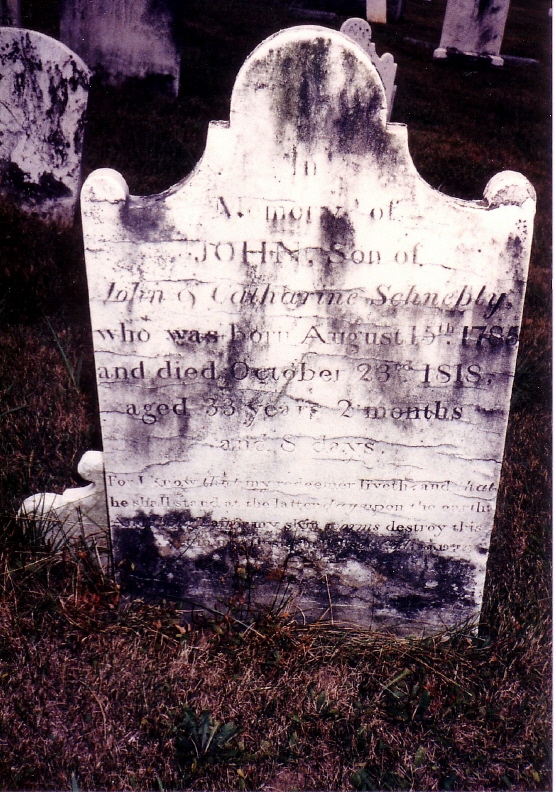 In
Memory of
JOHN, Son of
John & Catharine Schnebly,
who was born August 15th. 1785
and died October 23rd 1818,
aged 33 years 2 months
and 8 days.
For I know that my redeemer liveth, and that
he shall stand at the latter day upon the earth:
my skin worms destroy this